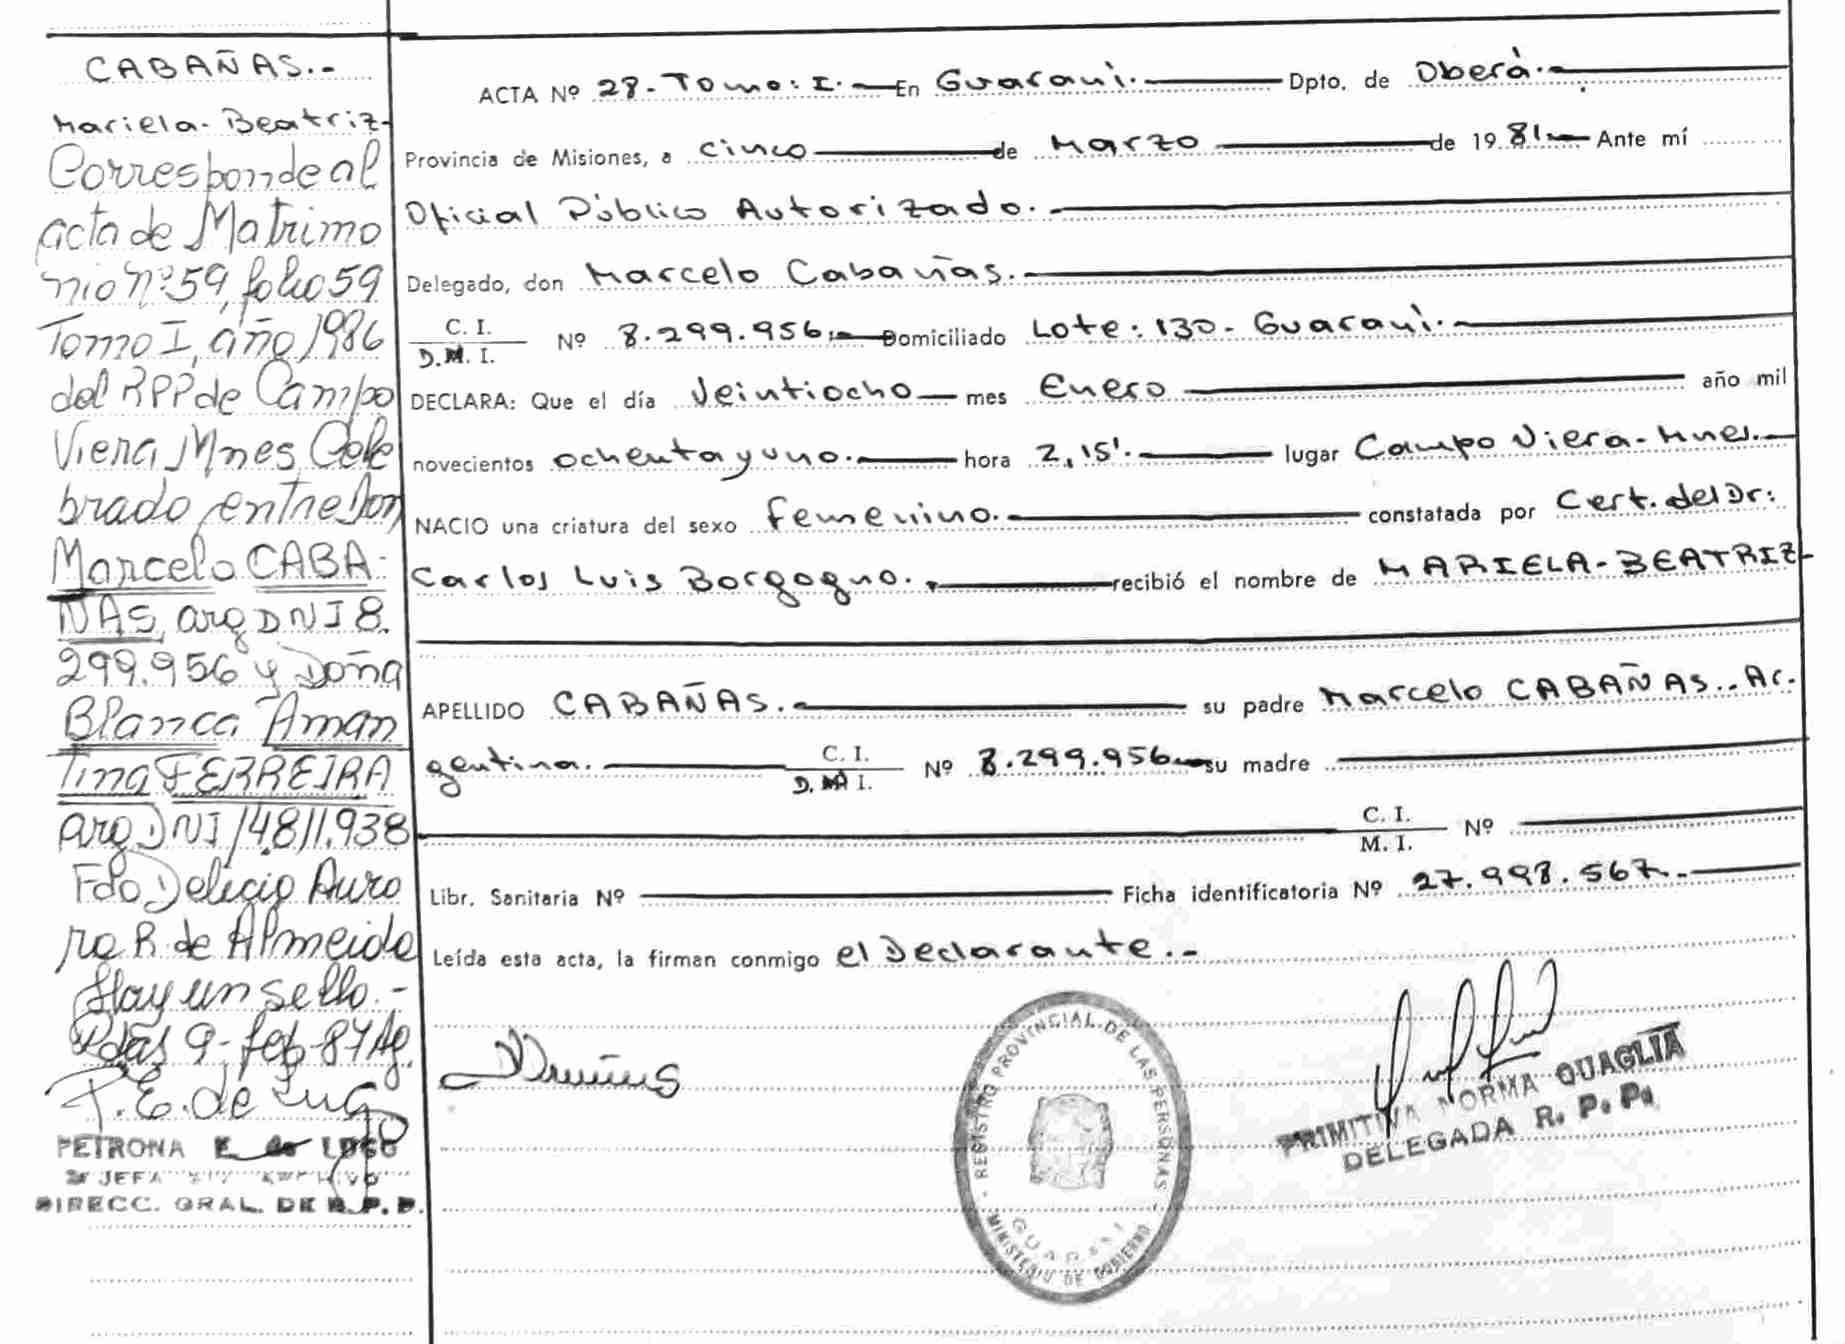 CABAÑAS.-
Mariela-Beatriz-
Corresponde al
acta de Matrimo
nio nº 59, folio 59
Tomo I, año 1986
del RPP de Campo
Viera Mnes Cele
brado entre Don
Marcelo CABA-
ÑAS, arg DNI 8.
299.956 y Doña
Blanca Aman
Tina FERREIRA
arg DNI 14.811.938
Fdo Delicia Auro
ra R. de Almeida
Hay un sello.-
Pdas 9-feb-87
P.E. de Lugo
PETRONA E. de LUGO
JEFA
DIRECC. GRAL. DE R.P.P.
ACTA Nº 28-Tomo: I.- En Guaraní.- Dpto. de Oberá.-
Provincia de Misiones, a cinco de Marzo de 1981.- Ante mí
Oficial Público Autorizado.-
Delegado, don Marcelo Cabañas.-
C. I.
D.M. I. Nº 8.299.956.- Domiciliado Lote: 130- Guaraní.-
DECLARA: Que el día Veintiocho mes Enero año mil
novecientos ochenta y uno.- hora 2,15'.- lugar Campo Viera-Mnes.-
NACIO una criatura del sexo femenino.- constatada por Cert. del Dr:
Carlos Luis Borgogno.- recibió el nombre de MARIELA-BEATRIZ-
APELLIDO CABAÑAS.- su padre Marcelo CABAÑAS.. Ar-
gentina.- C. I.
D. M I. Nº 8.299.956 su madre
C. I.
M. I. Nº
Libr. Sanitaria Nº Ficha identificatoria Nº 27.998.567.-
Leída esta acta, la firman conmigo el Declarante.-
REGISTRO PROVINCIAL DE LAS PERSONAS
GUARANI
MINISTERIO DE GOBIERNO
PRIMITIVA NORMA QUAGLIA
DELEGADA R. P. P.